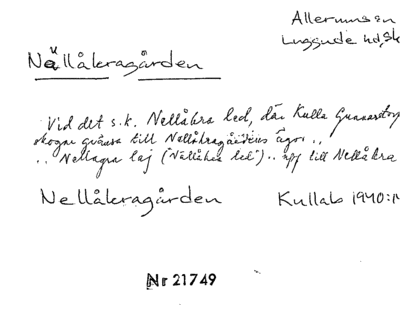 Allerums sn
Luggude hd, Sk
Nällåkragården
Vid det s.k. Nellåkra led, där Kulla Gunnarstorp
skogar gränsa till Nellåkragårdens ägor ..
.. Nellagra laj ("Nällåkra led") .. upp till Nellåkra
Nellåkragården
Kullab 1940:
Nr 21749